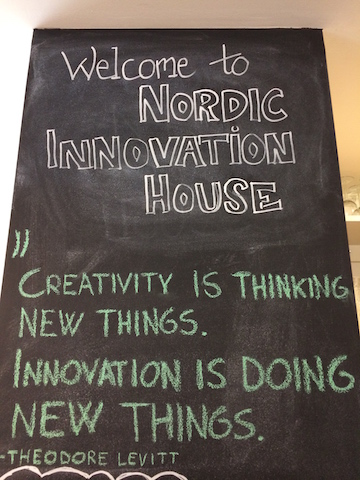 Welcome to
NORDIC
INNOVATION
HOUSE
"
CREATIVITY IS THINKING
NEW THINGS.
INNOVATION IS DOING
NEW THINGS.
-THEODORE LEVITT